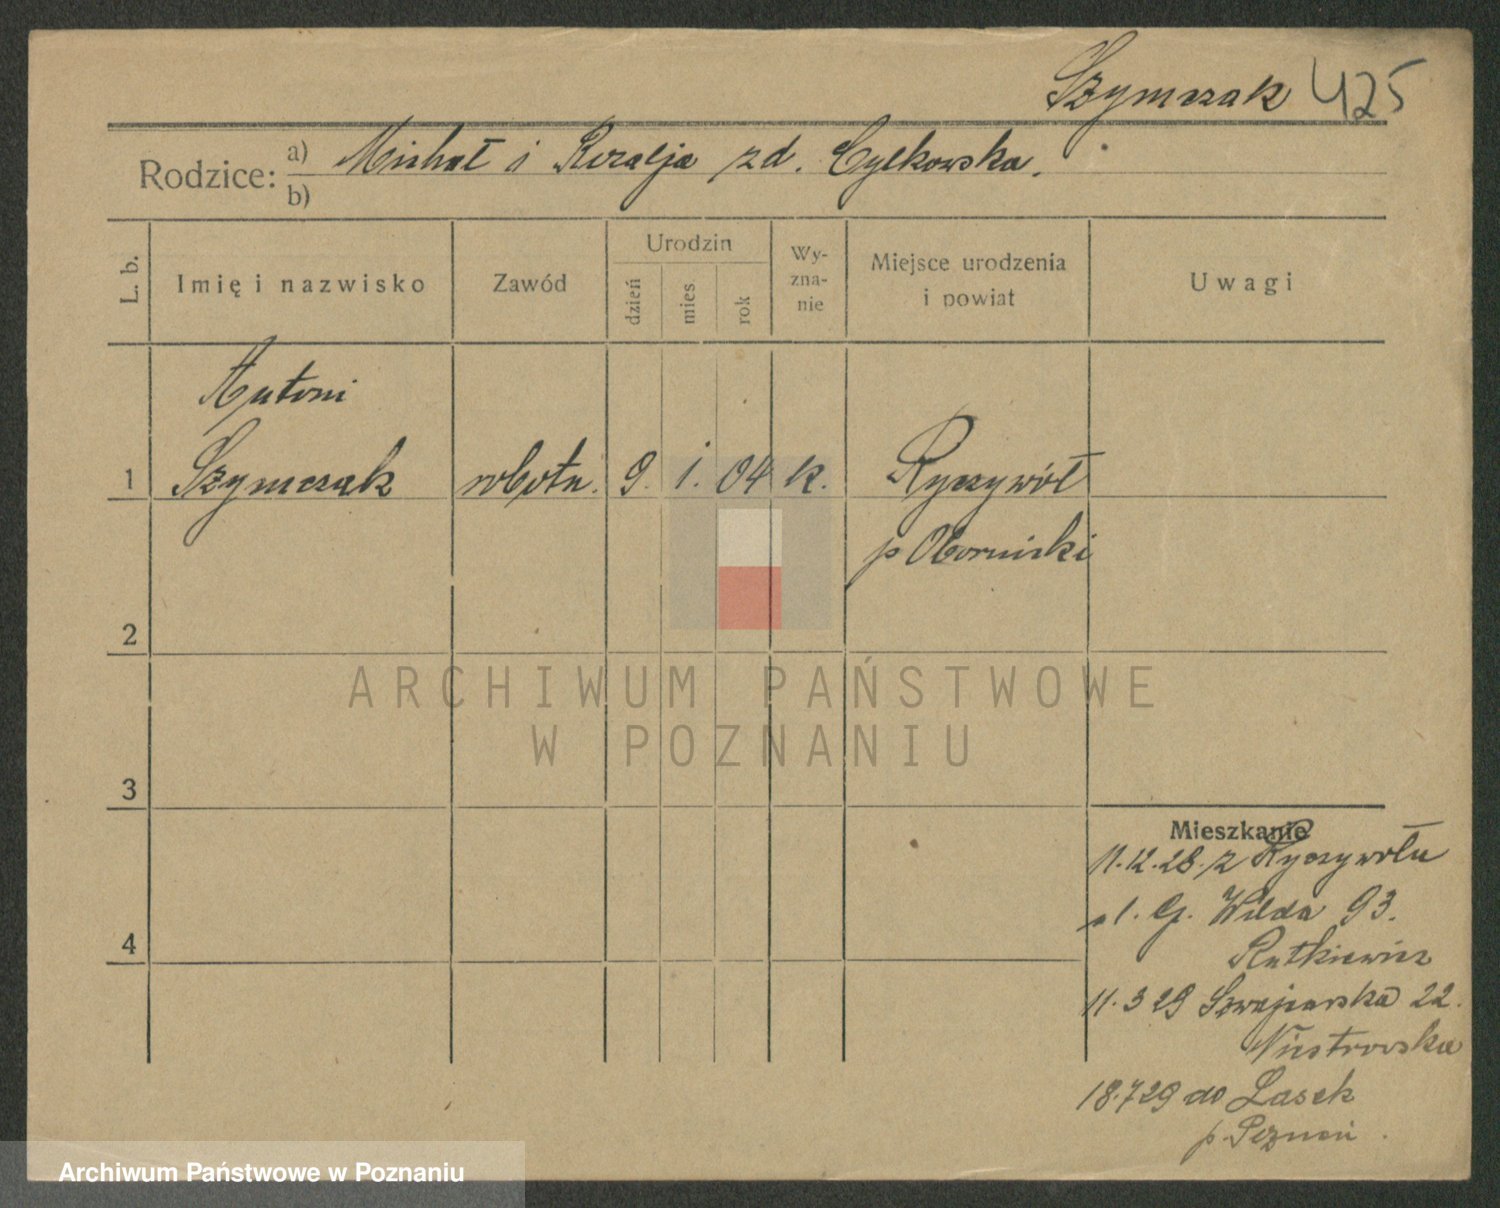 Szymczak 425
Rodzice: a) Michał i Rozalja zd. Cylkowska.
b)
L. b.
Imię i nazwisko
Zawód
Urodzin
dzień
mies.
rok
Wy-
zna-
nie
Miejsce urodzenia
i powiat
Uwagi
Antoni
1 Szymczak robotn. 9. 1. 04 k. Ryczywół
p Obornicki
2
3
4
Mieszkanie
11.12.28. z Ryczywołu
G. Wilda 93.
Rutkiewicz
11.3 29 Szwajcarska 22.
18.7 29 do Lasek
p. Poznań.
ARCHIWUM PAŃSTWOWE
W POZNANIU
Archiwum Państwowe w Poznaniu